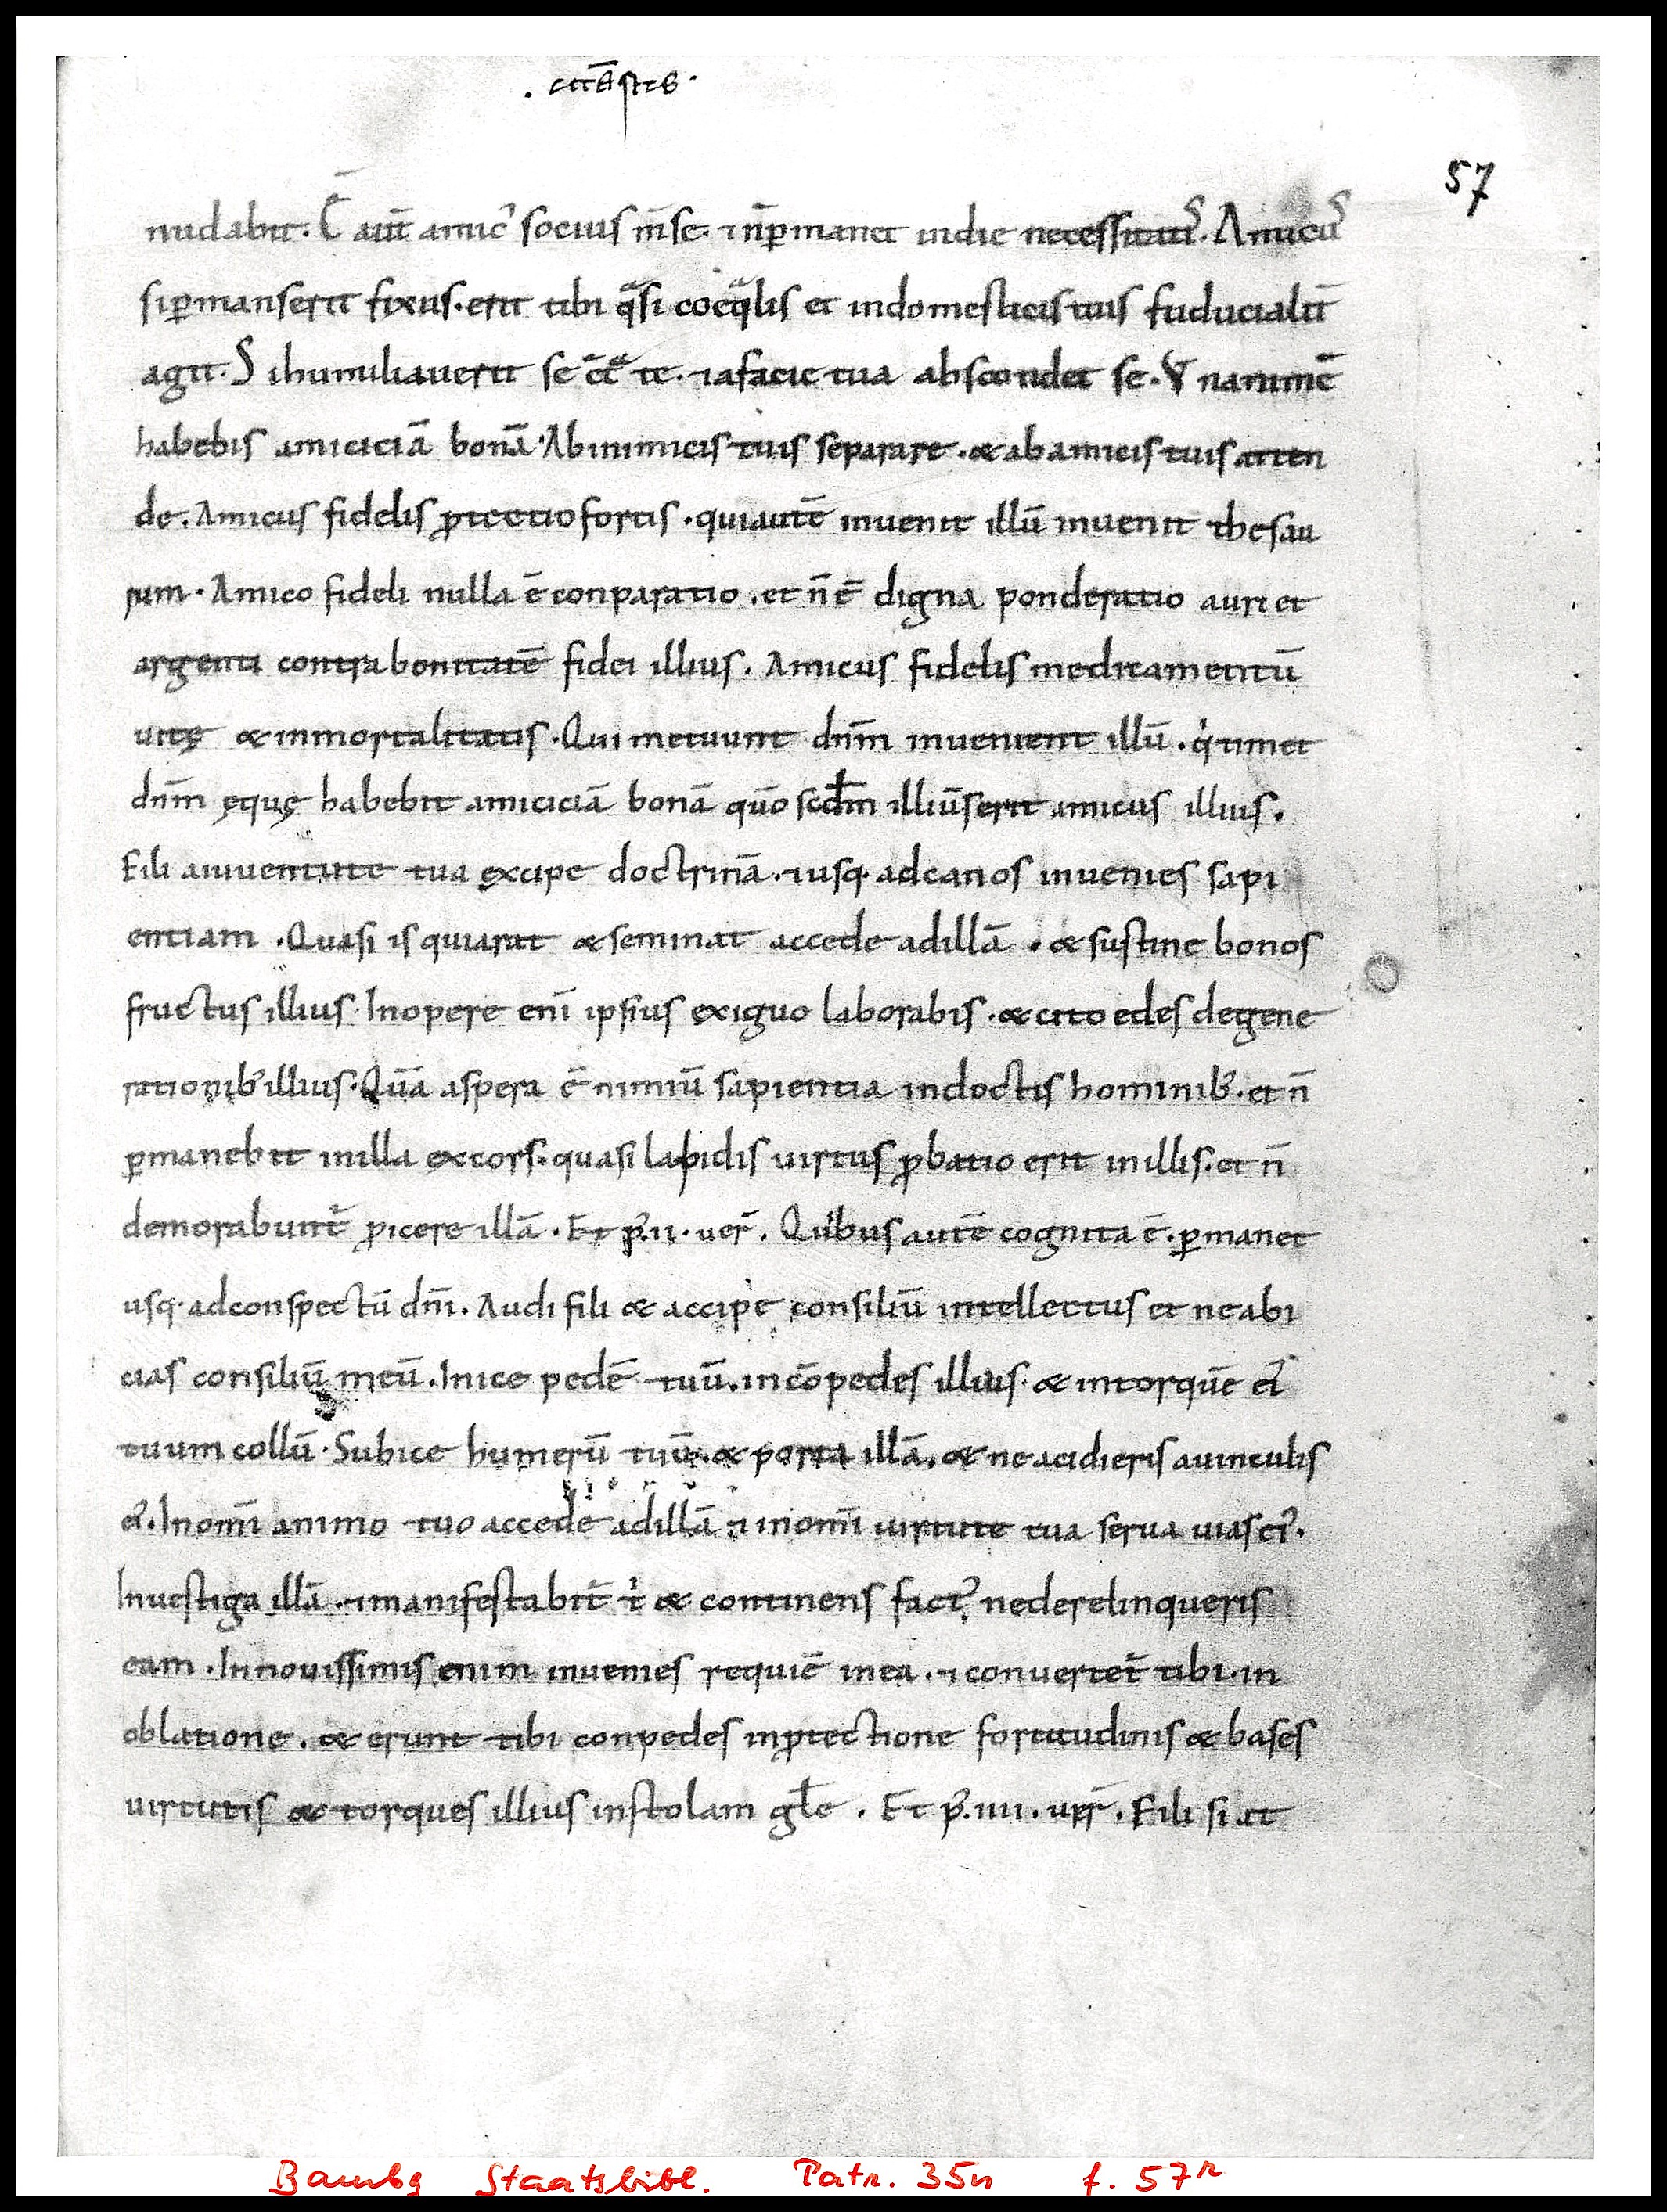 57
nudabit. Ē aūt amic᾽ socius m̄se. ⁊ n̄ ꝑmanet indie necessitatis. Amicus
si ꝑmanserit fixus. erit tibi qͣsi coeqͣlis et indomesticis tuis fuducialit̄
agit. Si humiliauerit se c̄cͣ te. ⁊ afacie tua abscondet se. Vnanimē
habebis amiciciā bonā. Abinimicis tuis separare. & abamicis tuis atten
de. Amicus fidelis ꝓtectio fortis. qui autē inuenit illū inuenit thesau
rum. Amico fideli nulla ē conparatio. et n̄ ē digna ponderatio auri et
argenti contra bonitatē fidei illius. Amicus fidelis medicamentū
uitę & inmortalitatis. Qui metuunt dn̄m inuenient illū. qͥ timet
dn̄m ęquę habebit amiciciā bonā quō scd̄m illiū serit amicus illius.
Fili aiuuentute tua excipe doctrinā. ⁊ usq; adcanos inuenies sapi
entiam. Quasi is qui arat & seminat accede adillā. & sustine bonos
fructus illius. Inopere enī ipsius exiguo laborabis. & cito edes degene
rationib᾽ illius. Quā aspera ē nimiū sapientia indoctis hominib᾽. et n̄
ꝑmanebit inilla excors. quasi lapidis uirtus ꝓbatio erit inillis. et n̄
demorabunt̄ ꝓicere illā. Et p᾽. ii. uer̄. Quibus autē cognita ē. ꝑmanet
usq; adconspectū dn̄i. Audi fili & accipe consiliū intellectus et ne abi
cias consiliū meū. Inice pedē tuū. incōpedes illius. & intorquē ei᾽
tuum collū. Subice humerū tuū. & porta illā. & ne acidieris auinculis
ei᾽. Inom̄i animo tuo accede adillā ⁊ inom̄i uirtute tua serua uias ei᾽.
Inuestiga illā. ⁊ manifestabit̄ tͥ & continens fact᾽ nederelinqueris
eam. Innouissimis enim inuenies requiē inea. ⁊ conuertet̄ tibi. in
oblatione. & erunt tibi conpedes inꝓtectione fortitudinis & bases
uirtutis & torques illius instolam gl̄e. Et p᾽. iiii. uer̄. Fili si at
Bambg Staatsbibl. Patr. 35n f. 57r